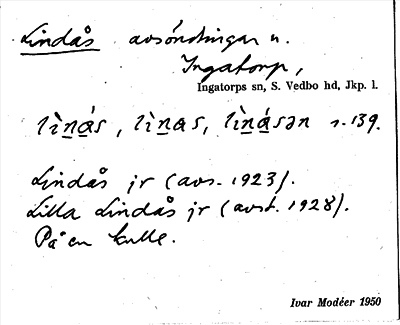 Lindås avsöndringar u.
Ingatorp,
Ingatorps sn, S. Vedbo hd, Jkp. l.
lìnás, lìnas, lìnásən s. 139.
Lindås jr (avs. 1923).
Lilla Lindås jr (avst. 1928).
På en kulle.
Ivar Modéer 1950